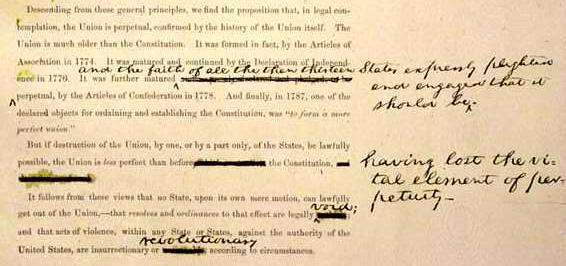 Descending from these general principles, we find the proposition that, in legal con-
templation, the Union is perpetual, confirmed by the history of the Union itself. The
Union is much older than the Constitution. It was formed in fact, by the Articles of
Association in 1774. It was matured and continued by the Declaration of Independ-
and the faith of all the then thirteen States expressly plighted
ence in 1776. It was further matured
and engaged that it
should be
perpetual, by the Articles of Confederation in 1778. And finally, in 1787, one of the
declared objects for ordaining and establishing the Constitution, was "to form a more
perfect union."
But if destruction of the Union, by one, or by a part only, of the States, be lawfully
possible, the Union is less perfect than before the Constitution,
having lost the vi-
tal element of per-
petuity.
It follows from these views that no State, upon its own mere motion, can lawfully
get out of the Union,—that resolves and ordinances to that effect are legally void;
and that acts of violence, within any State or States, against the authority of the
United States, are insurrectionary or revolutionary according to circumstances.